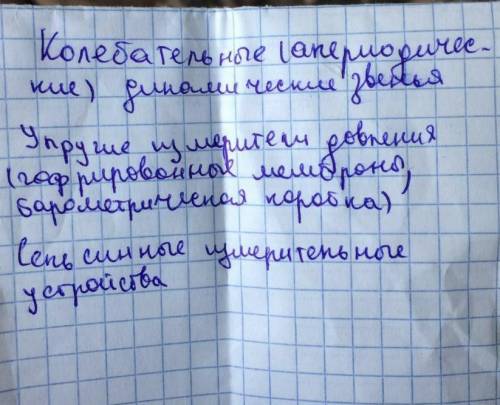 Колебательные (апериодичес-
кие) динамические звенья
Упругие измерители давления
(гофрированные мембраны,
барометрическая коробка)
Сельсинные измерительные
устройства